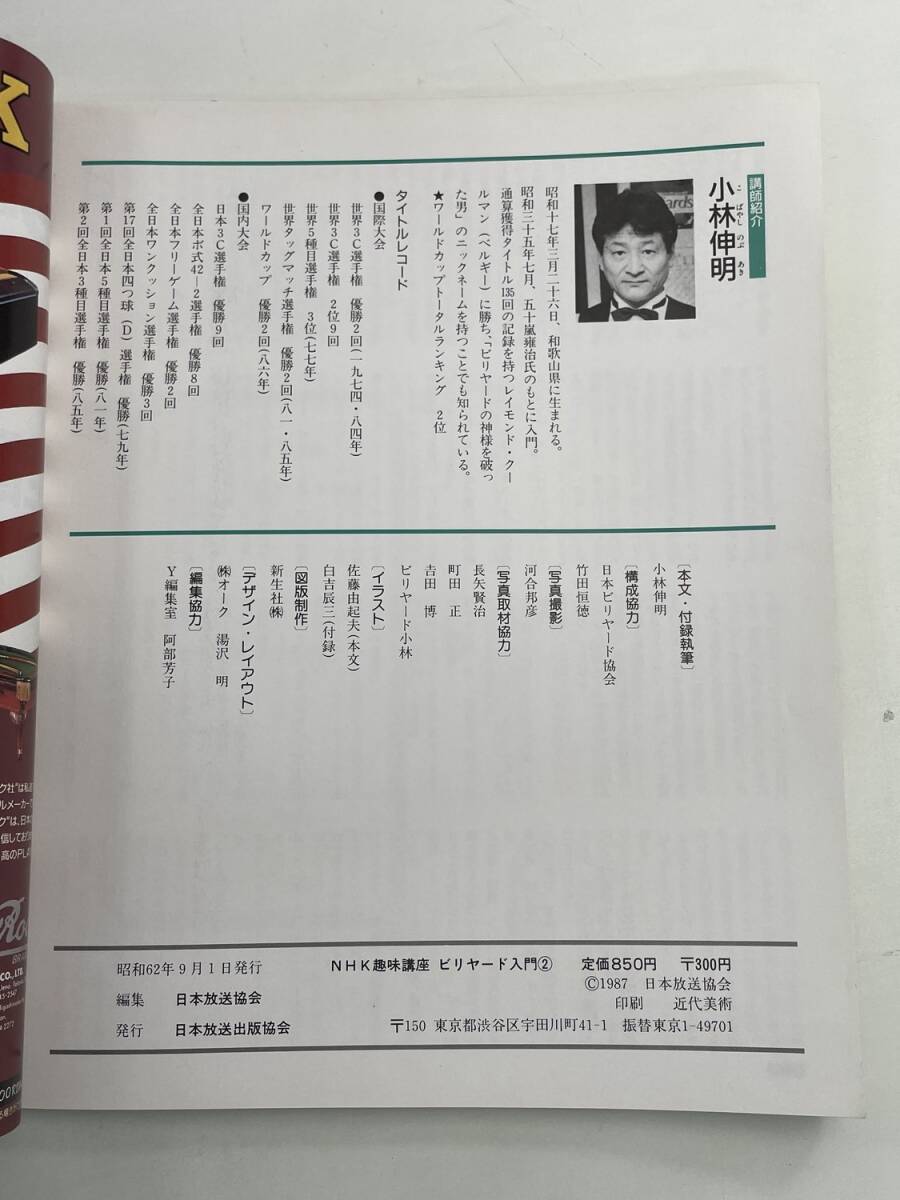 講師紹介
小林伸明
こばやし のぶ あき
昭和十七年三月二十六日、和歌山県に生まれる。
昭和三十五年七月、五十嵐雍治氏のもとに入門。
通算獲得タイトル135回の記録を持つレイモンド・クー
ルマン(ベルギー)に勝ち、「ビリヤードの神様を破っ
た男」のニックネームを持つことでも知られている。
★ワールドカップトータルランキング 2位
タイトルレコード
●国際大会
世界3C選手権 優勝2回(一九七四・八四年)
世界3C選手権 2位9回
世界5種目選手権 3位(七七年)
世界タッグマッチ選手権 優勝2回(八一・八五年)
ワールドカップ 優勝2回(八六年)
●国内大会
日本3C選手権 優勝9回
全日本ボ式42—2選手権 優勝8回
全日本フリーゲーム選手権 優勝2回
全日本ワンクッション選手権 優勝3回
第17回全日本四つ球(D)選手権 優勝(七九年)
第1回全日本5種目選手権 優勝(八一年)
第2回全日本3種目選手権 優勝(八五年)
[本文・付録執筆]
小林伸明
[構成協力]
日本ビリヤード協会
竹田恒徳
[写真撮影]
河合邦彦
[写真取材協力]
長矢賢治
町田 正
吉田 博
ビリヤード小林
[イラスト]
佐藤由起夫(本文)
白吉辰三(付録)
[図版制作]
新生社㈱
[デザイン・レイアウト]
㈱オーク 湯沢 明
[編集協力]
Y編集室 阿部芳子
昭和62年9月1日発行
編集 日本放送協会
発行 日本放送出版協会
NHK趣味講座 ビリヤード入門② 定価850円 〒300円
©1987 日本放送協会
印刷 近代美術
〒150 東京都渋谷区宇田川町41-1 振替東京1-49701
K
ク社"は私
ルメーカーで
ク"は、日本
信しており
高のPLA
CO., LTD.